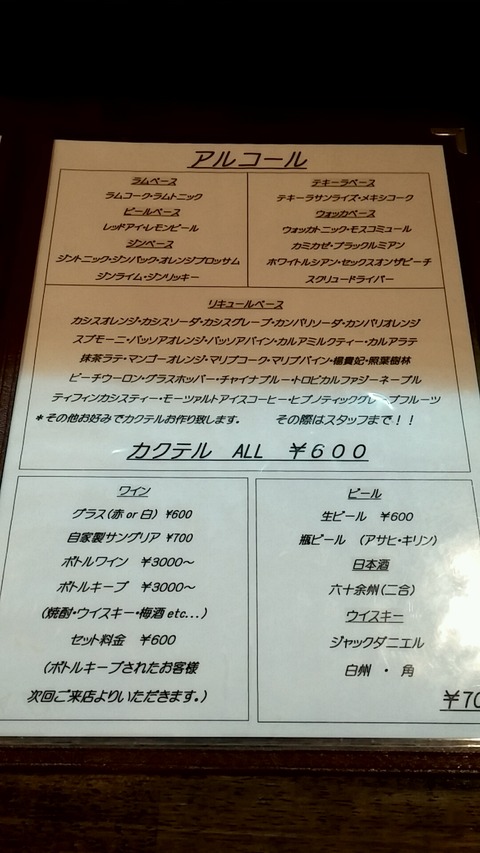 アルコール
ラムベース
ラムコーク・ラムトニック
ビールベース
レッドアイ・レモンビール
ジンベース
ジントニック・ジンバック・オレンジブロッサム
ジンライム・ジンリッキー
テキーラベース
テキーラサンライズ・メキシコーク
ウォッカベース
ウォッカトニック・モスコミュール
カミカゼ・ブラックルミアン
ホワイトルシアン・セックスオンザビーチ
スクリュードライバー
リキュールベース
カシスオレンジ・カシスソーダ・カシスグレープ・カンパリソーダ・カンパリオレンジ
スプモーニ・パッソアオレンジ・パッソアパイン・カルアミルクティー・カルアラテ
抹茶ラテ・マンゴーオレンジ・マリブコーク・マリブパイン・楊貴妃・照葉樹林
ピーチウーロン・グラスホッパー・チャイナブルー・トロピカルファジーネーブル
ティフィンカシスティー・モーツァルトアイスコーヒー・ヒプノティックグレープフルーツ
*その他お好みでカクテルお作り致します。 その際はスタッフまで！！
カクテル ALL ￥600
ワイン
グラス(赤 or 白) ¥600
自家製サングリア ¥700
ボトルワイン ￥3000～
ボトルキープ ￥3000～
(焼酎・ウイスキー・梅酒 etc...)
セット料金 ￥600
(ボトルキープされたお客様
次回ご来店よりいただきます。)
ビール
生ビール ￥600
瓶ビール (アサヒ・キリン)
日本酒
六十余州(二合)
ウイスキー
ジャックダニエル
白州 ・ 角